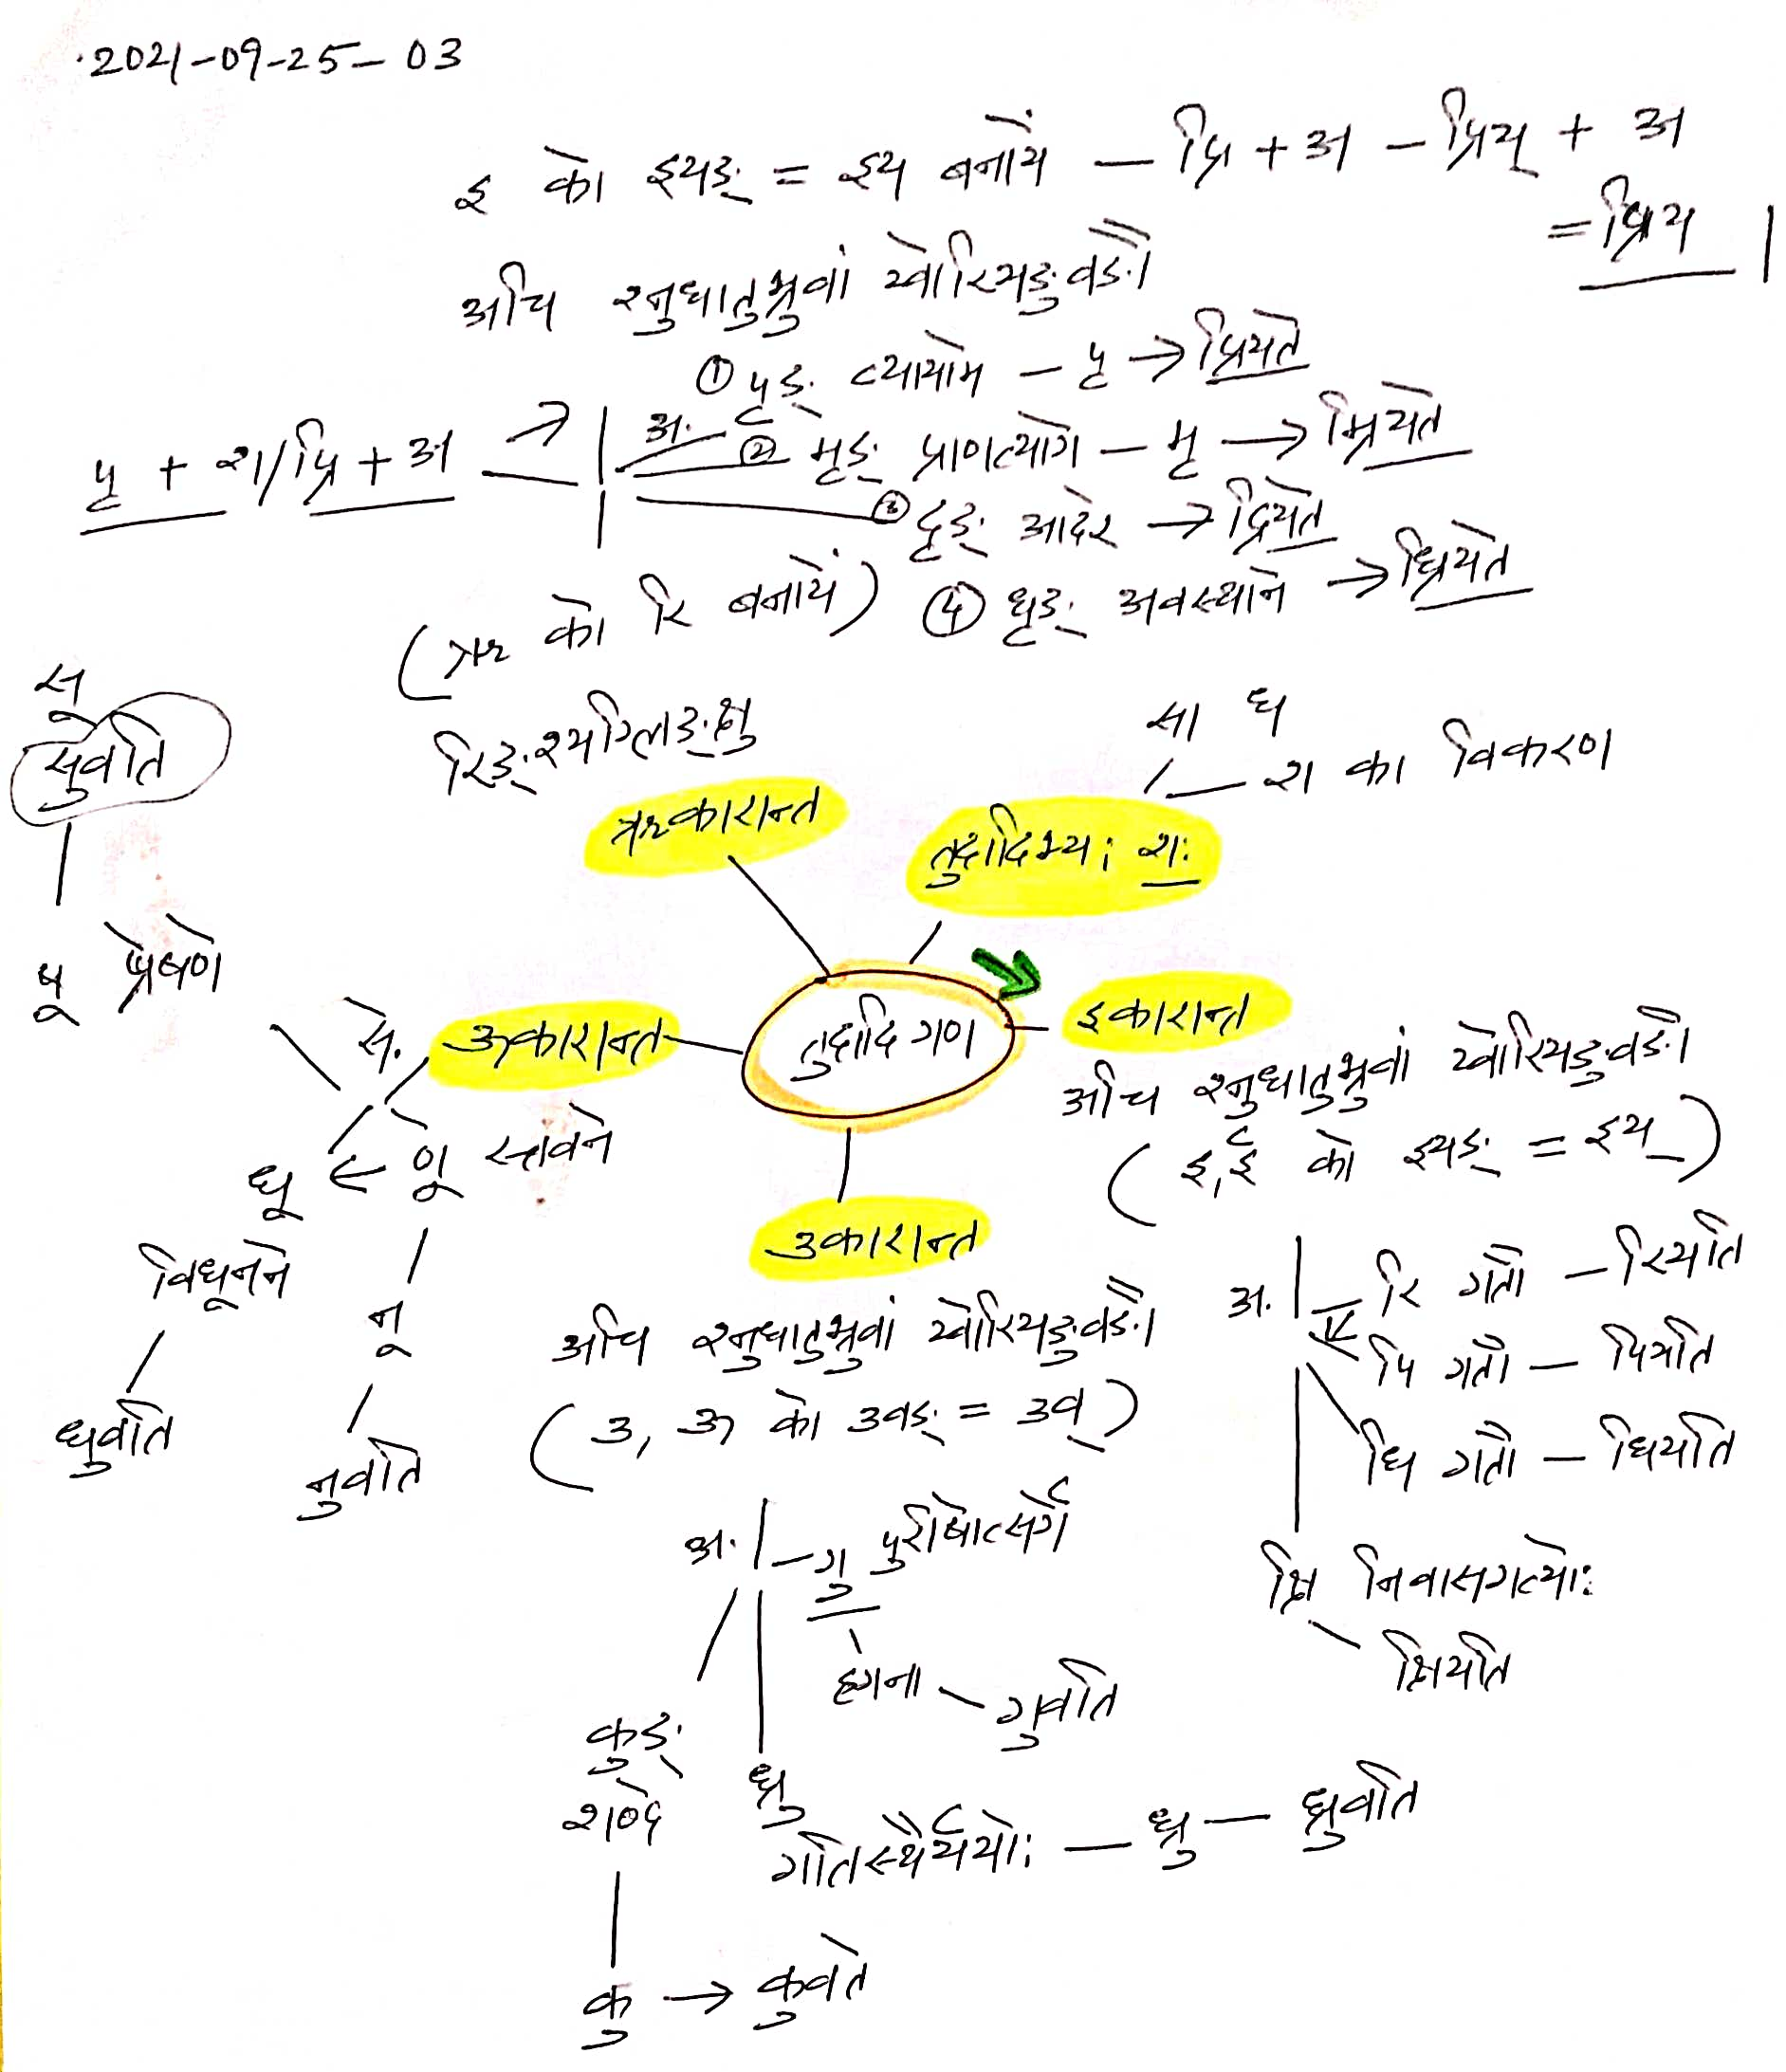 2021-09-25-03
इ को इयङ् = इय बनायें — प्रि + अ — प्रिय् + अ
= प्रिय |
अचि श्नुधातुभ्रुवां य्वोरियङुवङौ
① पृङ् व्यायामे — पृ → प्रियते
पृ + श/प्रि + अ → अ. ② मृङ् प्राणत्यागे — मृ → म्रियते
③ दृङ् आदरे → द्रियते
(ऋ को रि बनायें) ④ धृङ् अवस्थाने → ध्रियते
रिङ् शयग्लिङ्क्षु
सू
सुवति
षू प्रेषणे
सा ध
श का विकरण
ऋकारान्त
तुदादिभ्यः शः
तुदादि गण
इकारान्त
अचि श्नुधातुभ्रुवां य्वोरियङुवङौ
(इ, ई को इयङ् = इय्)
अ. रि गतौ — रियति
पि गतौ — पियति
धि गतौ — धियति
क्षि निवासगत्योः
क्षियति
ऊकारान्त
से.
धू ← णू स्तवने
विधूनने
धुवति
नू
नुवति
उकारान्त
अचि श्नुधातुभ्रुवां य्वोरियङुवङौ
(उ, ऊ को उवङ् = उव्)
अ. — गु पुरीषोत्सर्गे
हगना — गुवति
कुङ्
शब्दे
कु → कुवते
ध्रु
गतिस्थैर्ययोः — ध्रु — ध्रुवति